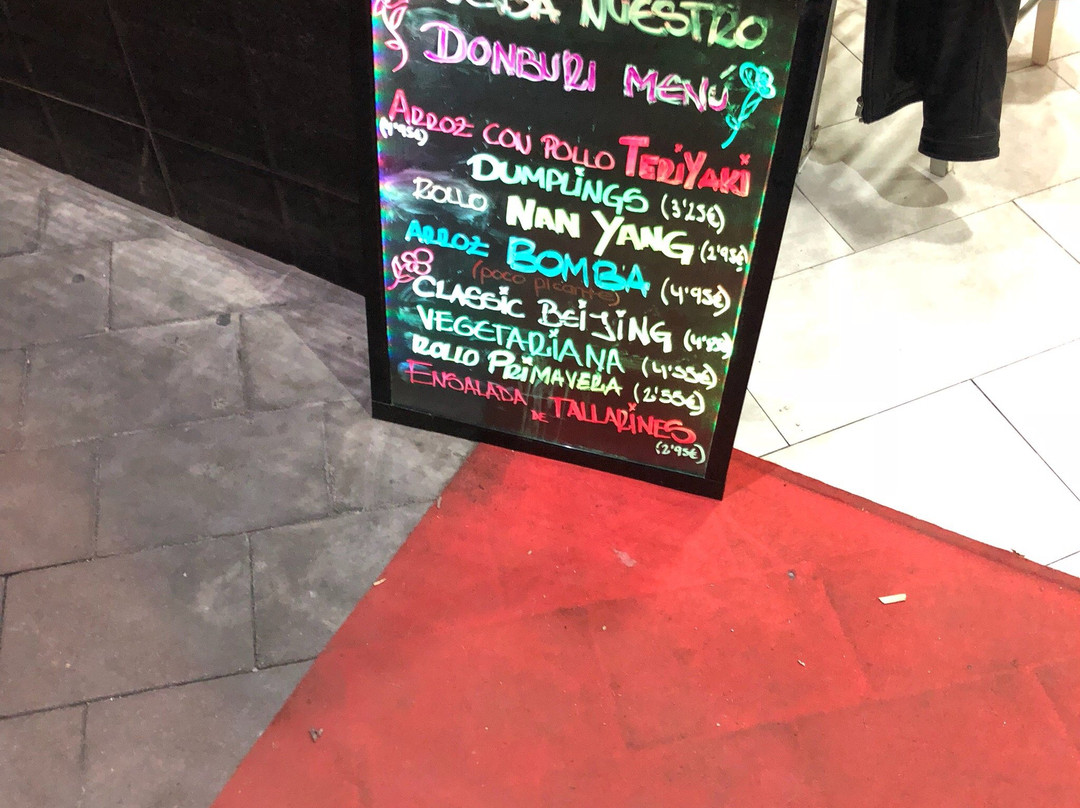 NUESTRO
DONBURI MENÚ
ARROZ CON POLLO TERIYAKI
(4'95€)
DUMPLINGS (3'25€)
ROLLO NAN YANG (2'95€)
ARROZ BOMBA (4'95€)
(poco picante)
CLASSIC BEIJING
VEGETARIANA (4'55€)
ROLLO PRIMAVERA (2'55€)
ENSALADA DE TALLARINES
(2'95€)